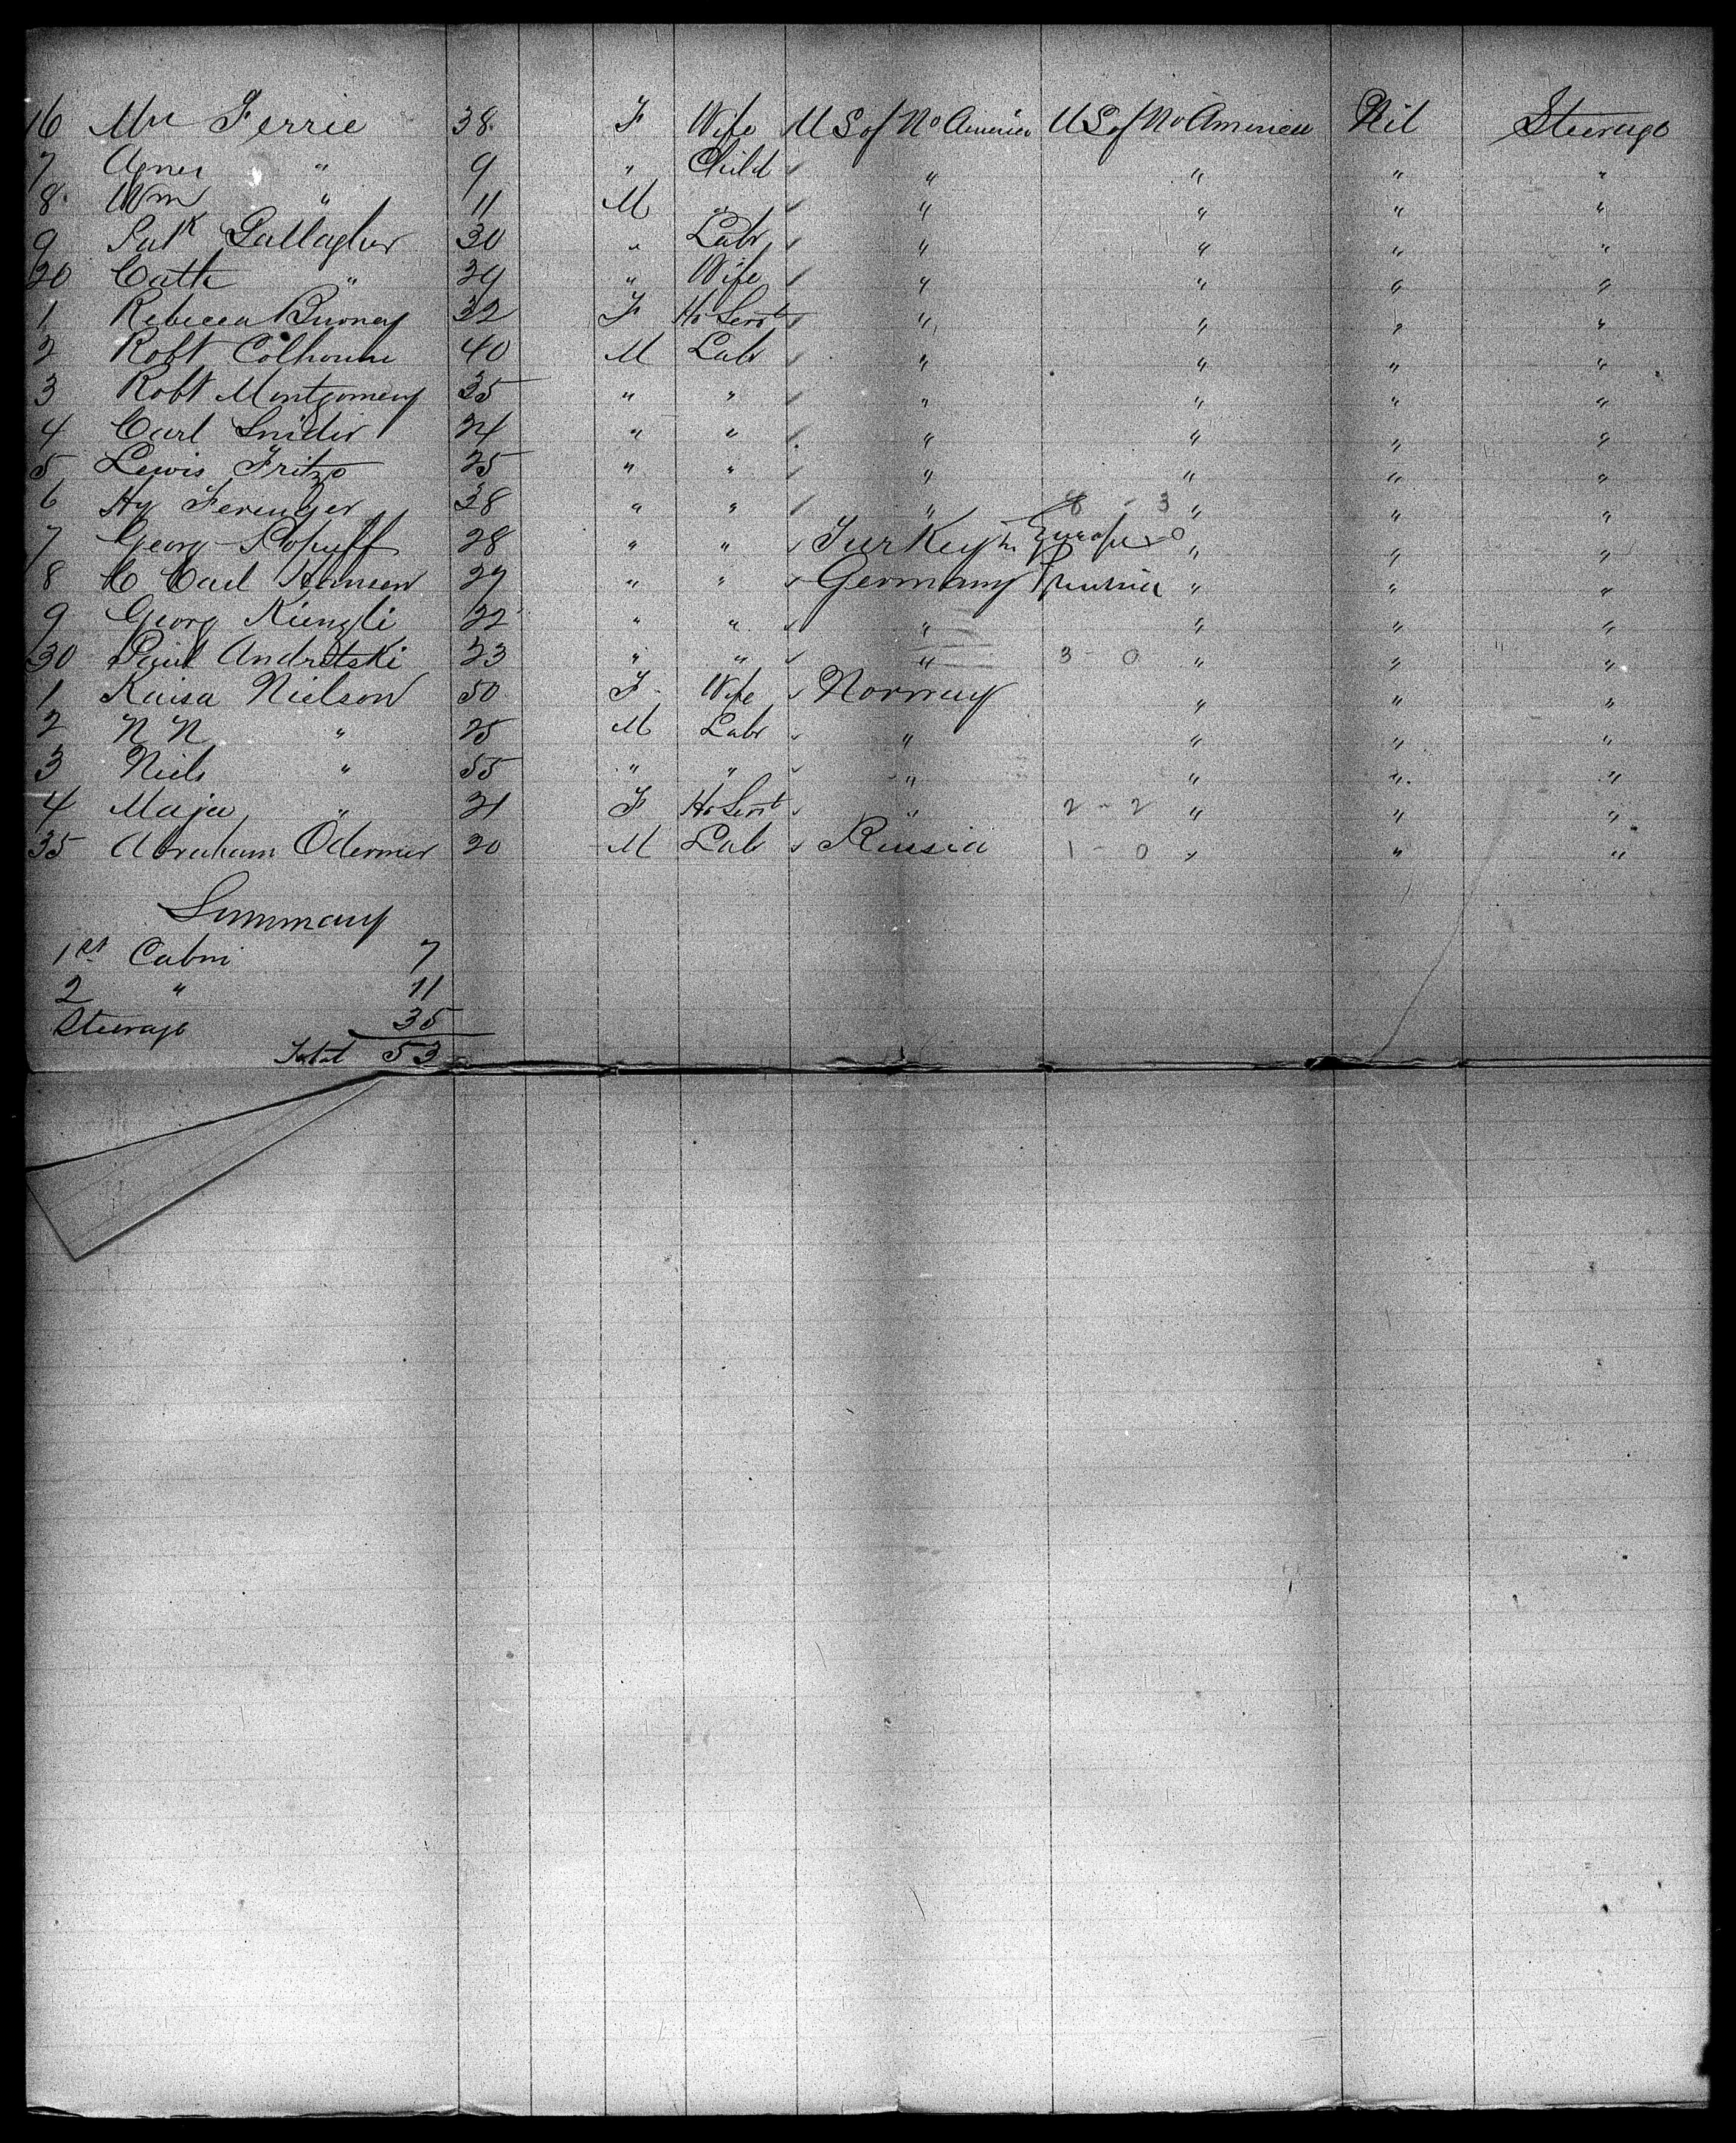 16 Mrs Ferrie 38 F Wife U S of No America U S of No America Nil Steerage
7 Agnes " 9 " Child " " " "
8 Wm " 11 M " " " " "
9 Patk Gallagher 30 " Labr " " " "
20 Cath " 29 " Wife " " " "
1 Rebecca 32 F Ho Servt " " " "
2 Robt Colhoun 40 M Labr " " " "
3 Robt Montgomery 35 " " " " " "
4 Carl Snider 24 " " " " " "
5 Lewis Fritze 25 " " " " " "
6 Hy 38 " " " 8 - 3 " " "
7 Georg Popuff 28 " " Turkey in Europe - 0 " " "
8 C Carl Hansen 27 " " Germany Prussia " " "
9 Georg Kiengli 22 " " " " " "
30 Paul Andretski 23 " " " 3 - 0 " " "
1 Kaisa Nielson 50 F Wife Norway " " "
2 N N " 25 M Labr " " " "
3 Niels " 55 " " " " " "
4 Maja " 21 F Ho Servt " 2 - 2 " " "
35 Abraham 20 M Labr Russia 1 - 0 " " "
Summary
1st Cabin 7
2 " 11
Steerage 35
Total 53